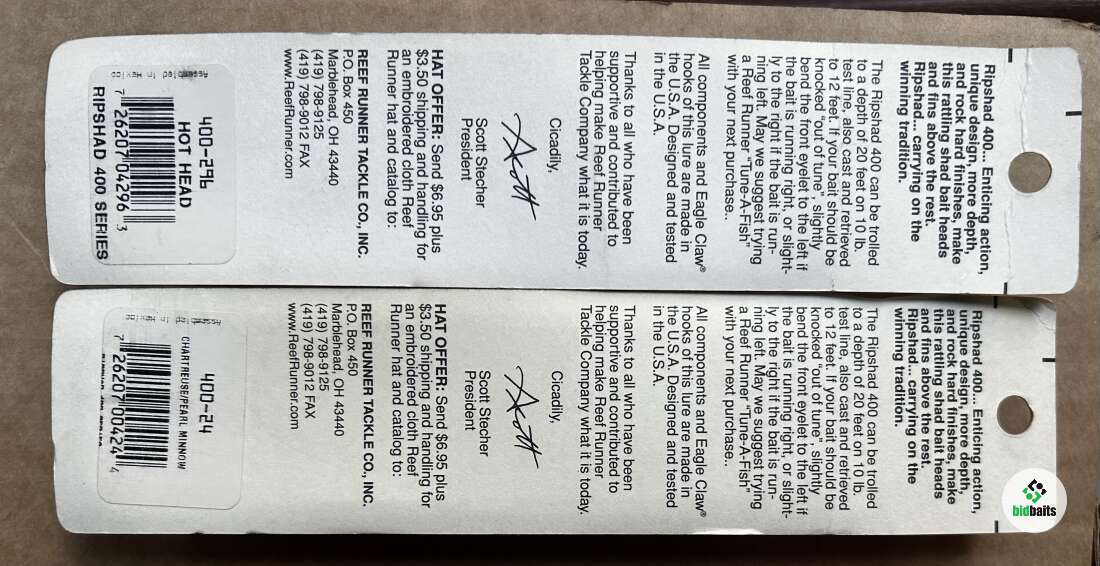 Ripshad 400... Enticing action,
unique design, more depth,
and rock hard finishes, make
this rattling shad bait heads
and fins above the rest.
Ripshad... carrying on the
winning tradition.
The Ripshad 400 can be trolled
to a depth of 20 feet on 10 lb.
test line, also cast and retrieved
to 12 feet. If your bait should be
knocked "out of tune", slightly
bend the front eyelet to the left if
the bait is running right, or slight-
ly to the right if the bait is run-
ning left. May we suggest trying
a Reef Runner "Tune-A-Fish"
with your next purchase..
All components and Eagle Claw®
hooks of this lure are made in
the U.S.A. Designed and tested
in the U.S.A.
Thanks to all who have been
supportive and contributed to
helping make Reef Runner
Tackle Company what it is today.
Cicadily,
Scott
Scott Stecher
President
HAT OFFER: Send $6.95 plus
$3.50 shipping and handling for
an embroidered cloth Reef
Runner hat and catalog to:
REEF RUNNER TACKLE CO., INC.
P.O. Box 450
Marblehead, OH 43440
(419) 798-9125
(419) 798-9012 FAX
www.ReefRunner.com
400-296
HOT HEAD
7 26207 04296 3
RIPSHAD 400 SERIES
Ripshad 400... Enticing action,
unique design, more depth,
and rock hard finishes, make
this rattling shad bait heads
and fins above the rest.
Ripshad... carrying on the
winning tradition.
The Ripshad 400 can be trolled
to a depth of 20 feet on 10 lb.
test line, also cast and retrieved
to 12 feet. If your bait should be
knocked "out of tune", slightly
bend the front eyelet to the left if
the bait is running right, or slight-
ly to the right if the bait is run-
ning left. May we suggest trying
a Reef Runner "Tune-A-Fish"
with your next purchase..
All components and Eagle Claw®
hooks of this lure are made in
the U.S.A. Designed and tested
in the U.S.A.
Thanks to all who have been
supportive and contributed to
helping make Reef Runner
Tackle Company what it is today.
Cicadily,
Scott
Scott Stecher
President
HAT OFFER: Send $6.95 plus
$3.50 shipping and handling for
an embroidered cloth Reef
Runner hat and catalog to:
REEF RUNNER TACKLE CO., INC.
P.O. Box 450
Marblehead, OH 43440
(419) 798-9125
(419) 798-9012 FAX
www.ReefRunner.com
400-24
CHARTREUSE/PEARL MINNOW
7 26207 00424 4
bidbaits